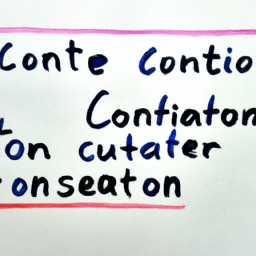 Conte Contio
Contiaton
on cutater
onseaton